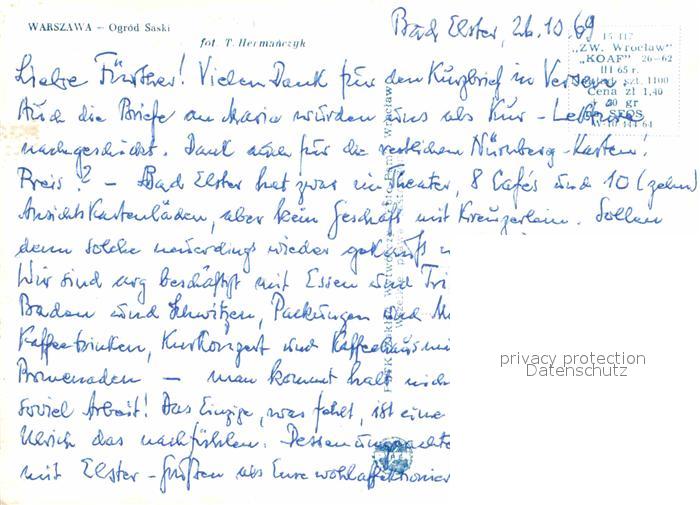 WARSZAWA – Ogród Saski
fot. T. Hermańczyk
Bad Elster, 26.10.69
15 417
„ZW. Wrocław”
„KOAF” 26–62
III 65 r.
szt. 1100
Cena zł 1,40
gr
Liebe Fürther! Vielen Dank für den Kurzbrief in Versen.
Auch die Briefe an Maria wurden uns als Kur-
nachgeschickt. Dank auch für die restlichen Nürnberg-Karten!
Preis? – Bad Elster hat zwar ein Theater, 8 Cafés und 10 (zehn)
Ansichtskartenläden, aber kein Geschäft mit Sollen
denn solche neuerdings wieder gekauft
Wir sind arg beschäftigt mit Essen und Tri
Baden und Schwitzen, Packungen und
Kaffeetrinken, Kurkonzert und Kaffeehausmu
Promenaden – man kommt halt nich
soviel Arbeit! Das Einzige, was fehlt, ist eine
Ulrich das nachfühlen. Dessenungeachte
mit Elster-Grüßen als Eure wohlaffektionier
privacy protection
Datenschutz